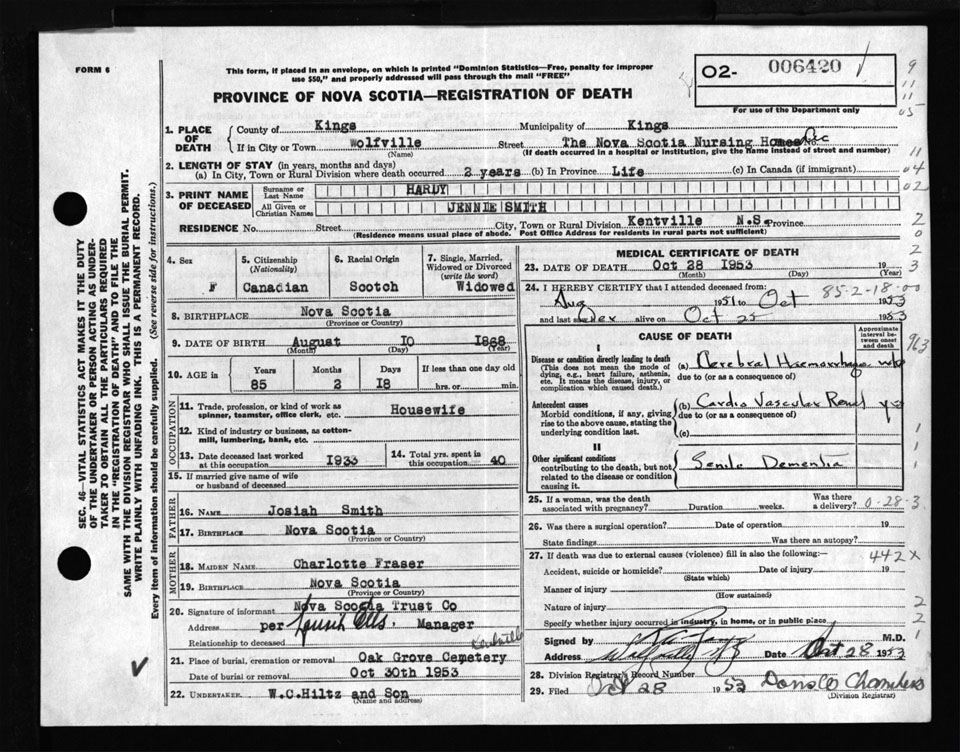 FORM 6
This form, if placed in an envelope, on which is printed "Dominion Statistics—Free, penalty for improper
use $50," and properly addressed will pass through the mail "FREE"
PROVINCE OF NOVA SCOTIA—REGISTRATION OF DEATH
02- 006420
For use of the Department only
SEC. 46—VITAL STATISTICS ACT MAKES IT THE DUTY
OF THE UNDERTAKER OR PERSON ACTING AS UNDER-
TAKER TO OBTAIN ALL THE PARTICULARS REQUIRED
IN THE "REGISTRATION OF DEATH" AND TO FILE THE
SAME WITH THE DIVISION REGISTRAR WHO SHALL ISSUE THE BURIAL PERMIT.
WRITE PLAINLY WITH UNFADING INK. THIS IS A PERMANENT RECORD.
Every item of information should be carefully supplied. (See reverse side for instructions.)
1. PLACE OF DEATH
County of Kings Municipality of Kings
If in City or Town Wolfville Street The Nova Scotia Nursing Homes No.
(Name) (If death occurred in a hospital or institution, give the name instead of street and number)
2. LENGTH OF STAY (in years, months and days)
(a) In City, Town or Rural Division where death occurred 2 years (b) In Province Life (c) In Canada (if immigrant)
3. PRINT NAME OF DECEASED
Surname or Last Name HARDY
All Given or Christian Names JENNIE SMITH
RESIDENCE No. Street City, Town or Rural Division Kentville N.S. Province
(Residence means usual place of abode. Post Office Address for residents in rural parts not sufficient)
4. Sex F
5. Citizenship (Nationality) Canadian
6. Racial Origin Scotch
7. Single, Married, Widowed or Divorced (write the word) Widowed
8. BIRTHPLACE Nova Scotia
(Province or Country)
9. DATE OF BIRTH August 10 1868
(Month) (Day) (Year)
10. AGE in Years Months Days If less than one day old
85 2 18 hrs. or min.
OCCUPATION
11. Trade, profession, or kind of work as spinner, teamster, office clerk, etc. Housewife
12. Kind of industry or business, as cotton-mill, lumbering, bank, etc.
13. Date deceased last worked at this occupation 1933
14. Total yrs. spent in this occupation 40
15. If married give name of wife or husband of deceased
FATHER
16. NAME Josiah Smith
17. BIRTHPLACE Nova Scotia
(Province or Country)
MOTHER
18. MAIDEN NAME Charlotte Fraser
19. BIRTHPLACE Nova Scotia
(Province or Country)
20. Signature of informant Nova Scotia Trust Co
Address per Manager
Relationship to deceased Kentville
21. Place of burial, cremation or removal Oak Grove Cemetery
Date of burial or removal Oct 30th 1953
22. UNDERTAKER W.C.Hiltz and Son
(Name and address)
MEDICAL CERTIFICATE OF DEATH
23. DATE OF DEATH Oct 28 1953 19
(Month) (Day) (Year)
24. I HEREBY CERTIFY that I attended deceased from: 85-2-18-00
Aug 1951 to Oct 1953
and last saw her alive on Oct 25 1953
CAUSE OF DEATH
Approximate interval between onset and death
I
Disease or condition directly leading to death
(This does not mean the mode of dying, e.g., heart failure, asthenia, etc. It means the disease, injury, or complication which caused death.)
(a) Cerebral Haemorrhage
due to (or as a consequence of)
Antecedent causes
Morbid conditions, if any, giving rise to the above cause, stating the underlying condition last.
(b) Cardio Vascular Renal
due to (or as a consequence of)
(c)
II
Other significant conditions
contributing to the death, but not related to the disease or condition causing it.
Senile Dementia
25. If a woman, was the death associated with pregnancy? Duration weeks. Was there a delivery? 0-28-3
26. Was there a surgical operation? Date of operation 19
State findings Was there an autopsy?
27. If death was due to external causes (violence) fill in also the following:— 442X
Accident, suicide or homicide? Date of injury 19
(State which)
Manner of injury
(How sustained)
Nature of injury
Specify whether injury occurred in industry, in home, or in public place
Signed by M.D.
Address Wolfville NS Date Oct 28 1953
28. Division Registrar's Record Number
29. Filed Oct 28 1953 Donald Chambers
(Division Registrar)